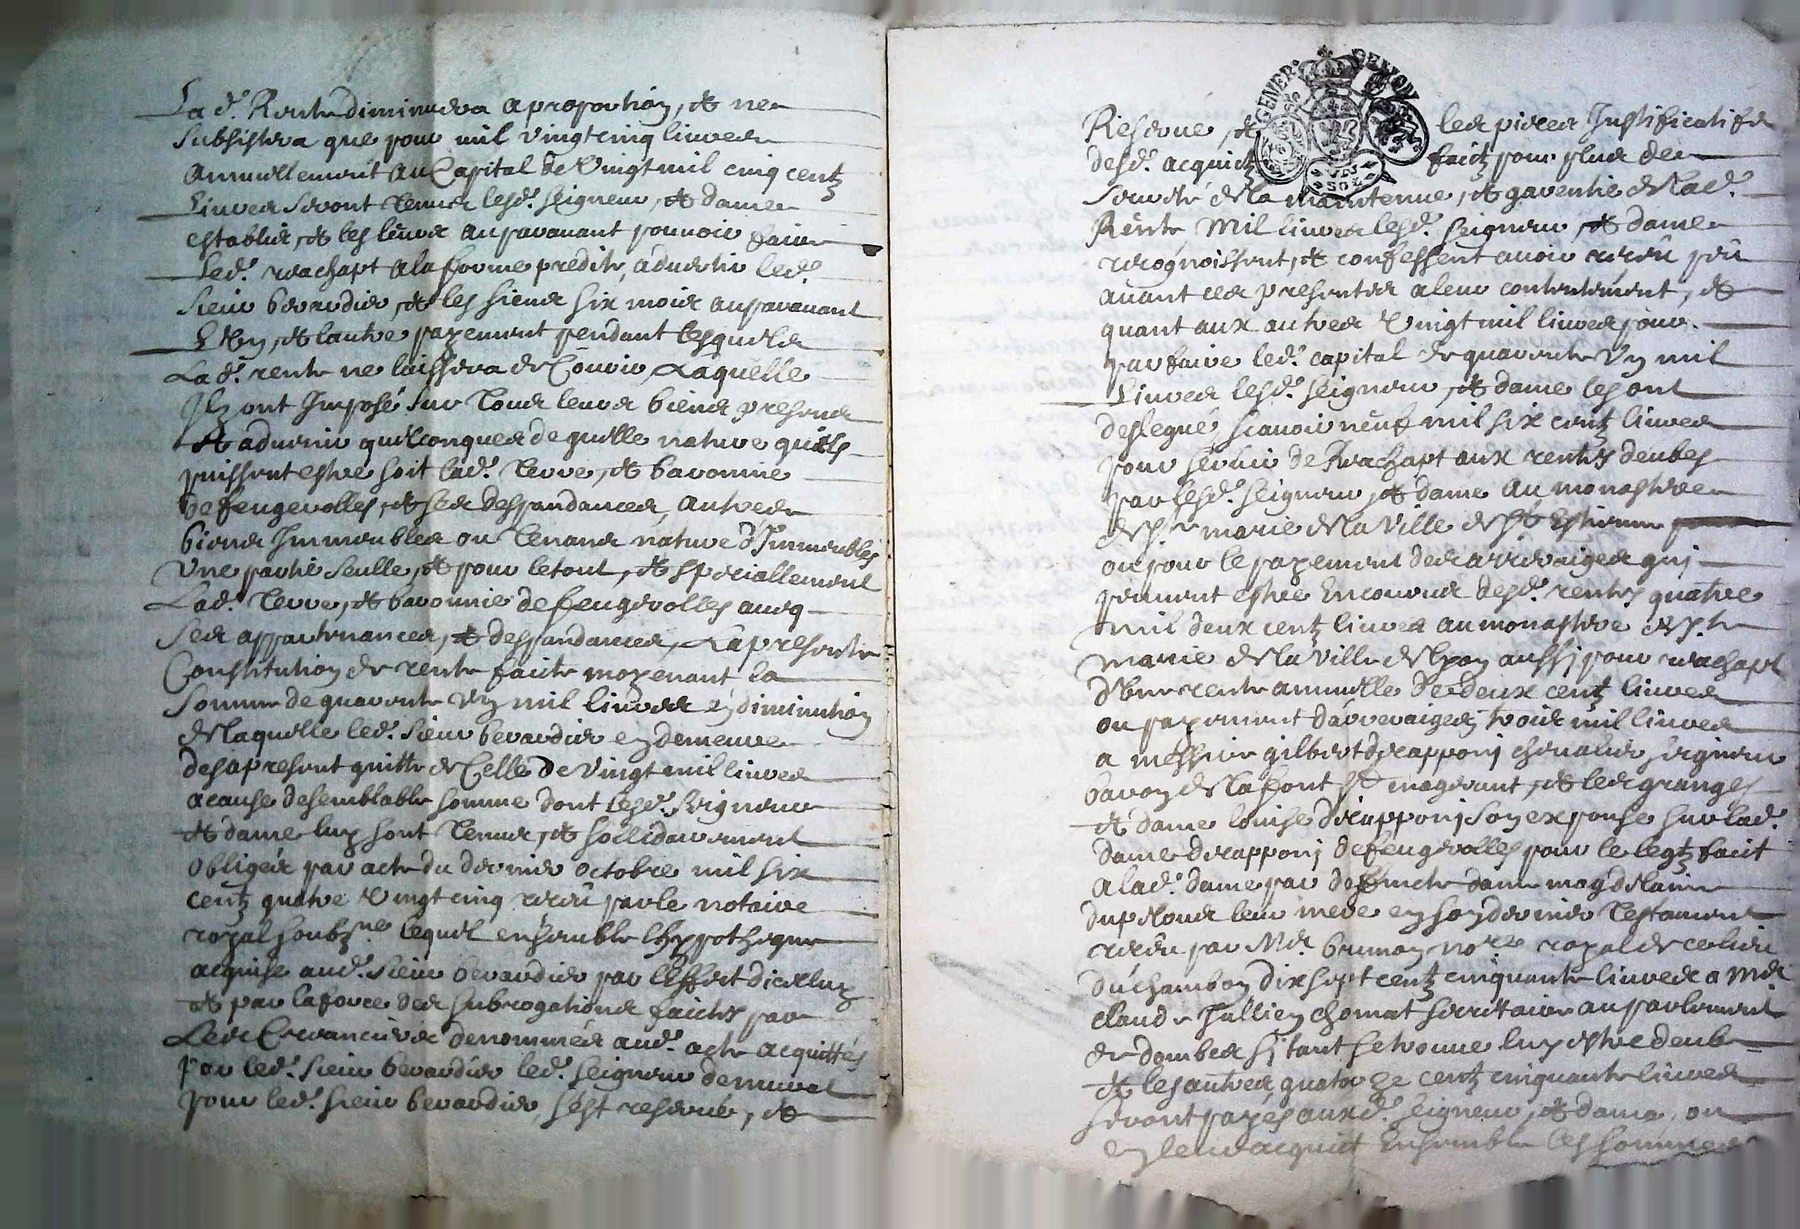 Lad. Rente diminuera a proportion, et ne
subsistera que pour mil vingt cinq livres
annuellement au Capital de Vingt mil cinq centz
Livres seront tenus lesd. seigneur, et dame
establis, et les leurs auparavant pouvoir faire
led. rachapt a la forme predite, advertir led.
sieur berardier, et les siens six mois auparavant
L'Un, et l'autre payement pendant lesquels
Lad. rente ne laissera de Courir, Laquelle
Ilz ont Imposé sur Tous leurs biens presens
et advenir quelconques de quelle nature quils
puissent estre soit lad. Terre, et baronnie
de feugerolles, et ses despandances, autres
biens Immeubles ou Tenans nature d'Immeubles
Une partie seulle, et pour le tout, et speciallement
Lad. Terre, et baronnie de feugerolles avecq
ses appartenances, et despandances, La presente
Constitution de rente faite moyenant la
somme de quarente Un mil livres en diminution
de laquelle led. sieur berardier en demeure
des a present quitte de Celle de Vingt mil livres
a cause de semblable somme dont lesd. seigneur
et dame luy sont Tenus, et sollidairement
obligés par acte du dernier octobre mil six
centz quatre Vingt cinq receu par le notaire
royal soubz.ne lequel ensemble l'hypotheque
acquise aud. sieur berardier par l'effect d'icelluy
et par la force des subrogations faictes par
Les Creanciers denommés aud. acte acquittés
par led. sieur berardier led. seigneur
pour led. sieur berardier, s'est reservé, et
GENER. DE LYON
Reserve, et les pieces Justificatifves
desd. acquictz faictz pour plus de
seureté de la maintenue, et garentie de lad.
Rente Mil livres lesd. seigneur, et dame
recognoissent, et confessent avoir receu cy
avant ces presentes a leur contentement, et
quant aux autres Vingt mil livres pour
parfaire led. capital de quarente Un mil
Livres lesd. seigneur, et dame les ont
deslegué, scavoir neuf mil six centz livres
pour servir de Rachapt aux rentes deubes
par lesd. seigneur, et dame au monastere
de Ste marie de la Ville de St Estienne
ou pour le payement des arreraiges qui
peuvent estre Encourus desd. rentes quatre
mil deux centz livres au monastere de Ste
marie de la Ville de Lyon aussi pour rachapt
d'Une rente annuelle de deux centz livres
ou payement d'arreraiges, trois mil livres
a messire gilbert de rapponj chevalier seigneur
baron de la font St magerant, et les granges
et dame louise de rapponj son expouse sur lad.
dame de rapponj de feugerolles pour le legtz faict
a lad. dame par deffuncte dame magdelaine
dupeloux leur mere en son dernier Testament
receu par Mre brunon no.re royal de ce lieu
du chambon dix sept centz cinquante livres a Mre
claude Jullien chomat secretaire au parlement
de dombes si tant se trouve luy estre deub
et les autres quatorze centz cinquante livres
seront payés auxd. seigneur, et dame, ou
en leur acquict Ensemble les sommes